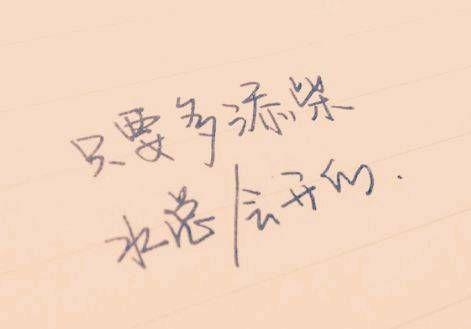 只要多添柴
水总会开的.